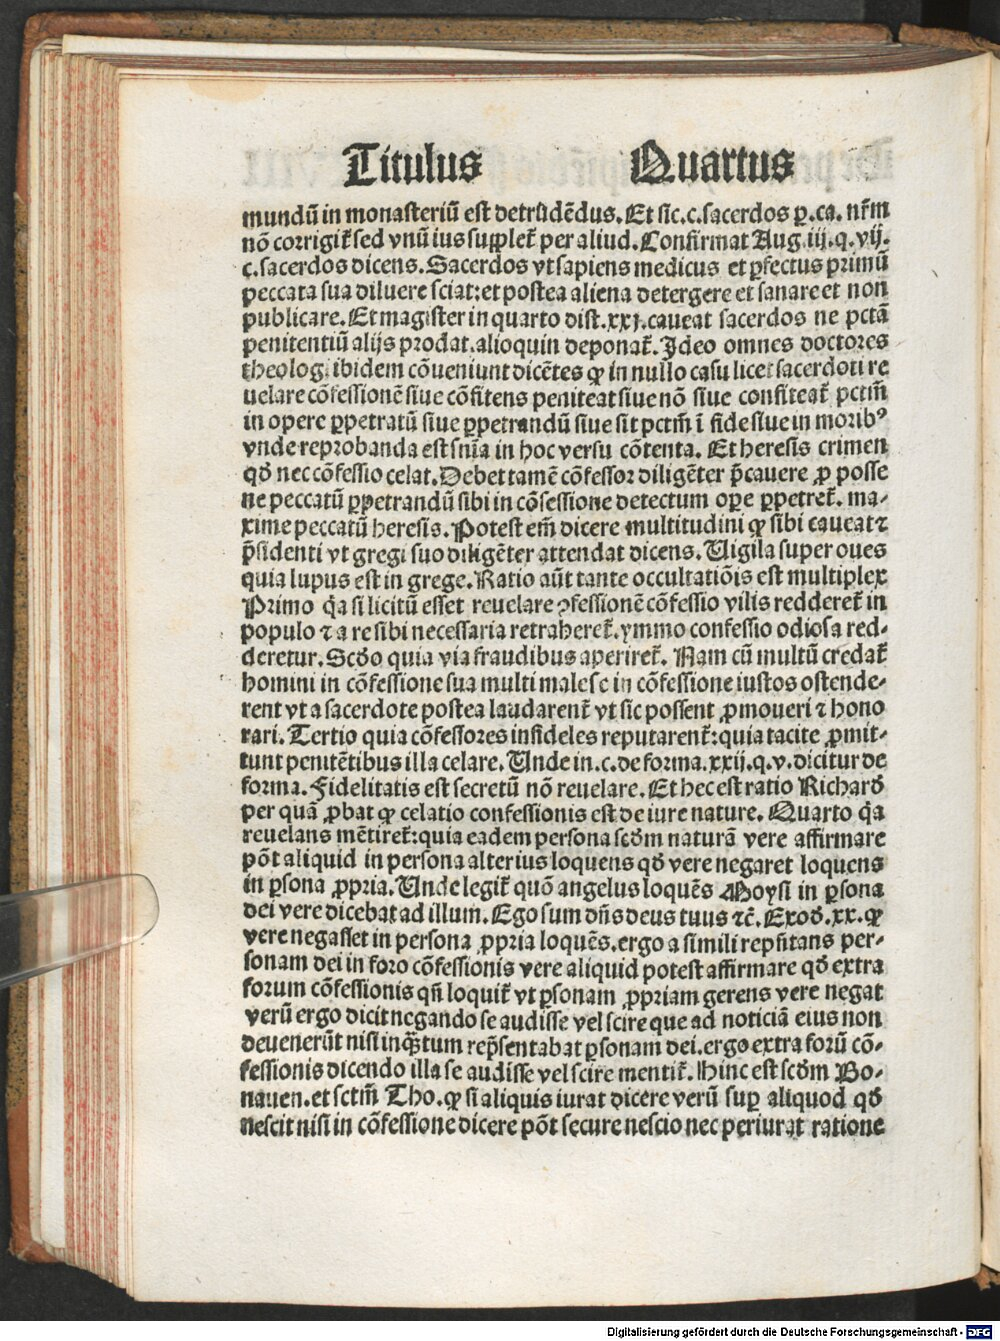 Titulus Quartus
mundū in monasteriū est detrudēdus. Et sic.c.sacerdos ꝑ.ca. nr̄m
nō corrigit̄ sed vnū ius supplet̄ per aliud. Confirmat Aug.iij.q.vij.
c.sacerdos dicens. Sacerdos vt sapiens medicus et ꝑfectus primū
peccata sua diluere sciat: et postea aliena detergere et sanare et non
publicare. Et magister in quarto dist.xxj.caueat sacerdos ne pctā
penitentiū alijs prodat.alioquin deponat̄. Ideo omnes doctores
theologi ibidem cōueniunt dicētes ꝙ in nullo casu licet sacerdoti re
uelare cōfessionē siue cōfitens peniteat siue nō siue confiteat̄ pctm̄
in opere ꝑpetratū siue ꝑpetrandū siue sit pctm̄ ī fide siue in moribꝰ
vnde reprobanda est sn̄ia in hoc versu cōtenta. Et heresis crimen
qđ nec cōfessio celat. Debet tamē cōfessor diligēter p̄cauere ꝓ posse
ne peccatū ꝑpetrandū sibi in cōfessione detectum oꝑe ꝑpetret̄. ma-
xime peccatū heresis. Potest em̄ dicere multitudini ꝙ sibi caueat ⁊
p̄sidenti vt gregi suo diligēter attendat dicens. Uigila super oues
quia lupus est in grege. Ratio aūt tante occultatiōis est multiplex
Primo q̄a si licitū esset reuelare ꝯfessionē cōfessio vilis redderet̄ in
populo ⁊ a re sibi necessaria retraheret̄. ymmo confessio odiosa red-
deretur. Scđo quia via fraudibus aperiret̄. Nam cū multū credat̄
homini in cōfessione sua multi male se in cōfessione iustos ostende-
rent vt a sacerdote postea laudarent̄ vt sic possent ꝓmoueri ⁊ hono
rari. Tertio quia cōfessores infideles reputarent̄: quia tacite ꝓmit-
tunt penitētibus illa celare. Unde in.c.de forma.xxij.q.v.dicitur de
forma. Fidelitatis est secretū nō reuelare. Et hec est ratio Richarđ
per quā ꝓbat ꝙ celatio confessionis est de iure nature. Quarto q̄a
reuelans mētiret̄: quia eadem persona scđm naturā vere affirmare
pōt aliquid in persona alterius loquens qđ vere negaret loquens
in ꝑsona ꝓpria. Unde legit̄ quō angelus loquēs Moysi in ꝑsona
dei vere dicebat ad illum. Ego sum dn̄s deus tuus ⁊c̄. Exođ.xx. ꝙ
vere negasset in persona ꝓpria loquēs.ergo a simili rep̄ntans per-
sonam dei in foro cōfessionis vere aliquid potest affirmare qđ extra
forum cōfessionis qn̄ loquit̄ vt ꝑsonam ꝓpriam gerens vere negat
verū ergo dicit negando se audisse vel scire que ad noticiā eius non
deuenerūt nisi inqꝫtum rep̄sentabat ꝑsonam dei.ergo extra forū cō-
fessionis dicendo illa se audisse vel scire mentit̄. Hinc est scđm Bo-
nauen. et sctm̄ Tho. ꝙ si aliquis iurat dicere verū suꝑ aliquod qđ
nescit nisi in cōfessione dicere pōt secure nescio nec periurat ratione
Digitalisierung gefördert durch die Deutsche Forschungsgemeinschaft - DFG